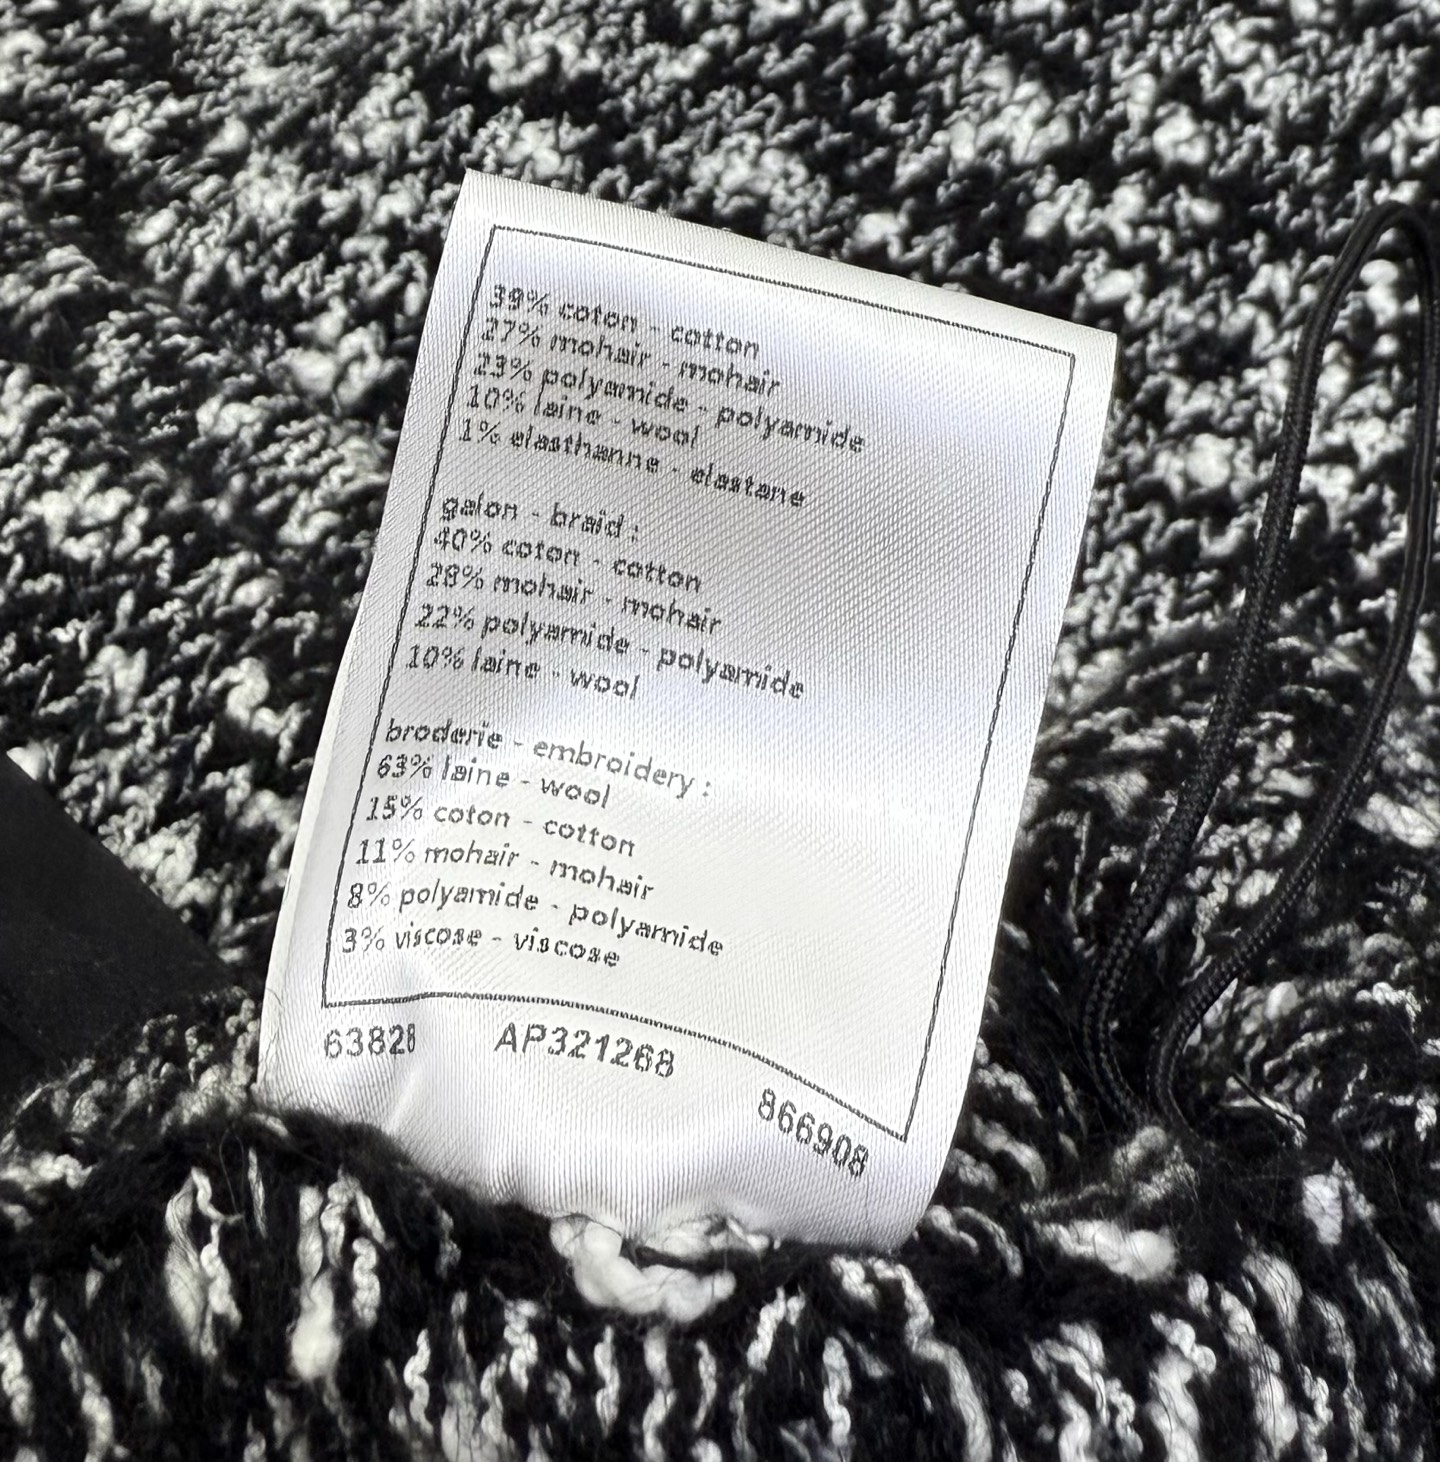 39% coton - cotton
27% mohair - mohair
23% polyamide - polyamide
10% laine - wool
1% elasthanne - elastane
galon - braid :
40% coton - cotton
28% mohair - mohair
22% polyamide - polyamide
10% laine - wool
broderie - embroidery :
63% laine - wool
15% coton - cotton
11% mohair - mohair
8% polyamide - polyamide
3% viscose - viscose
63828 AP321268 866908